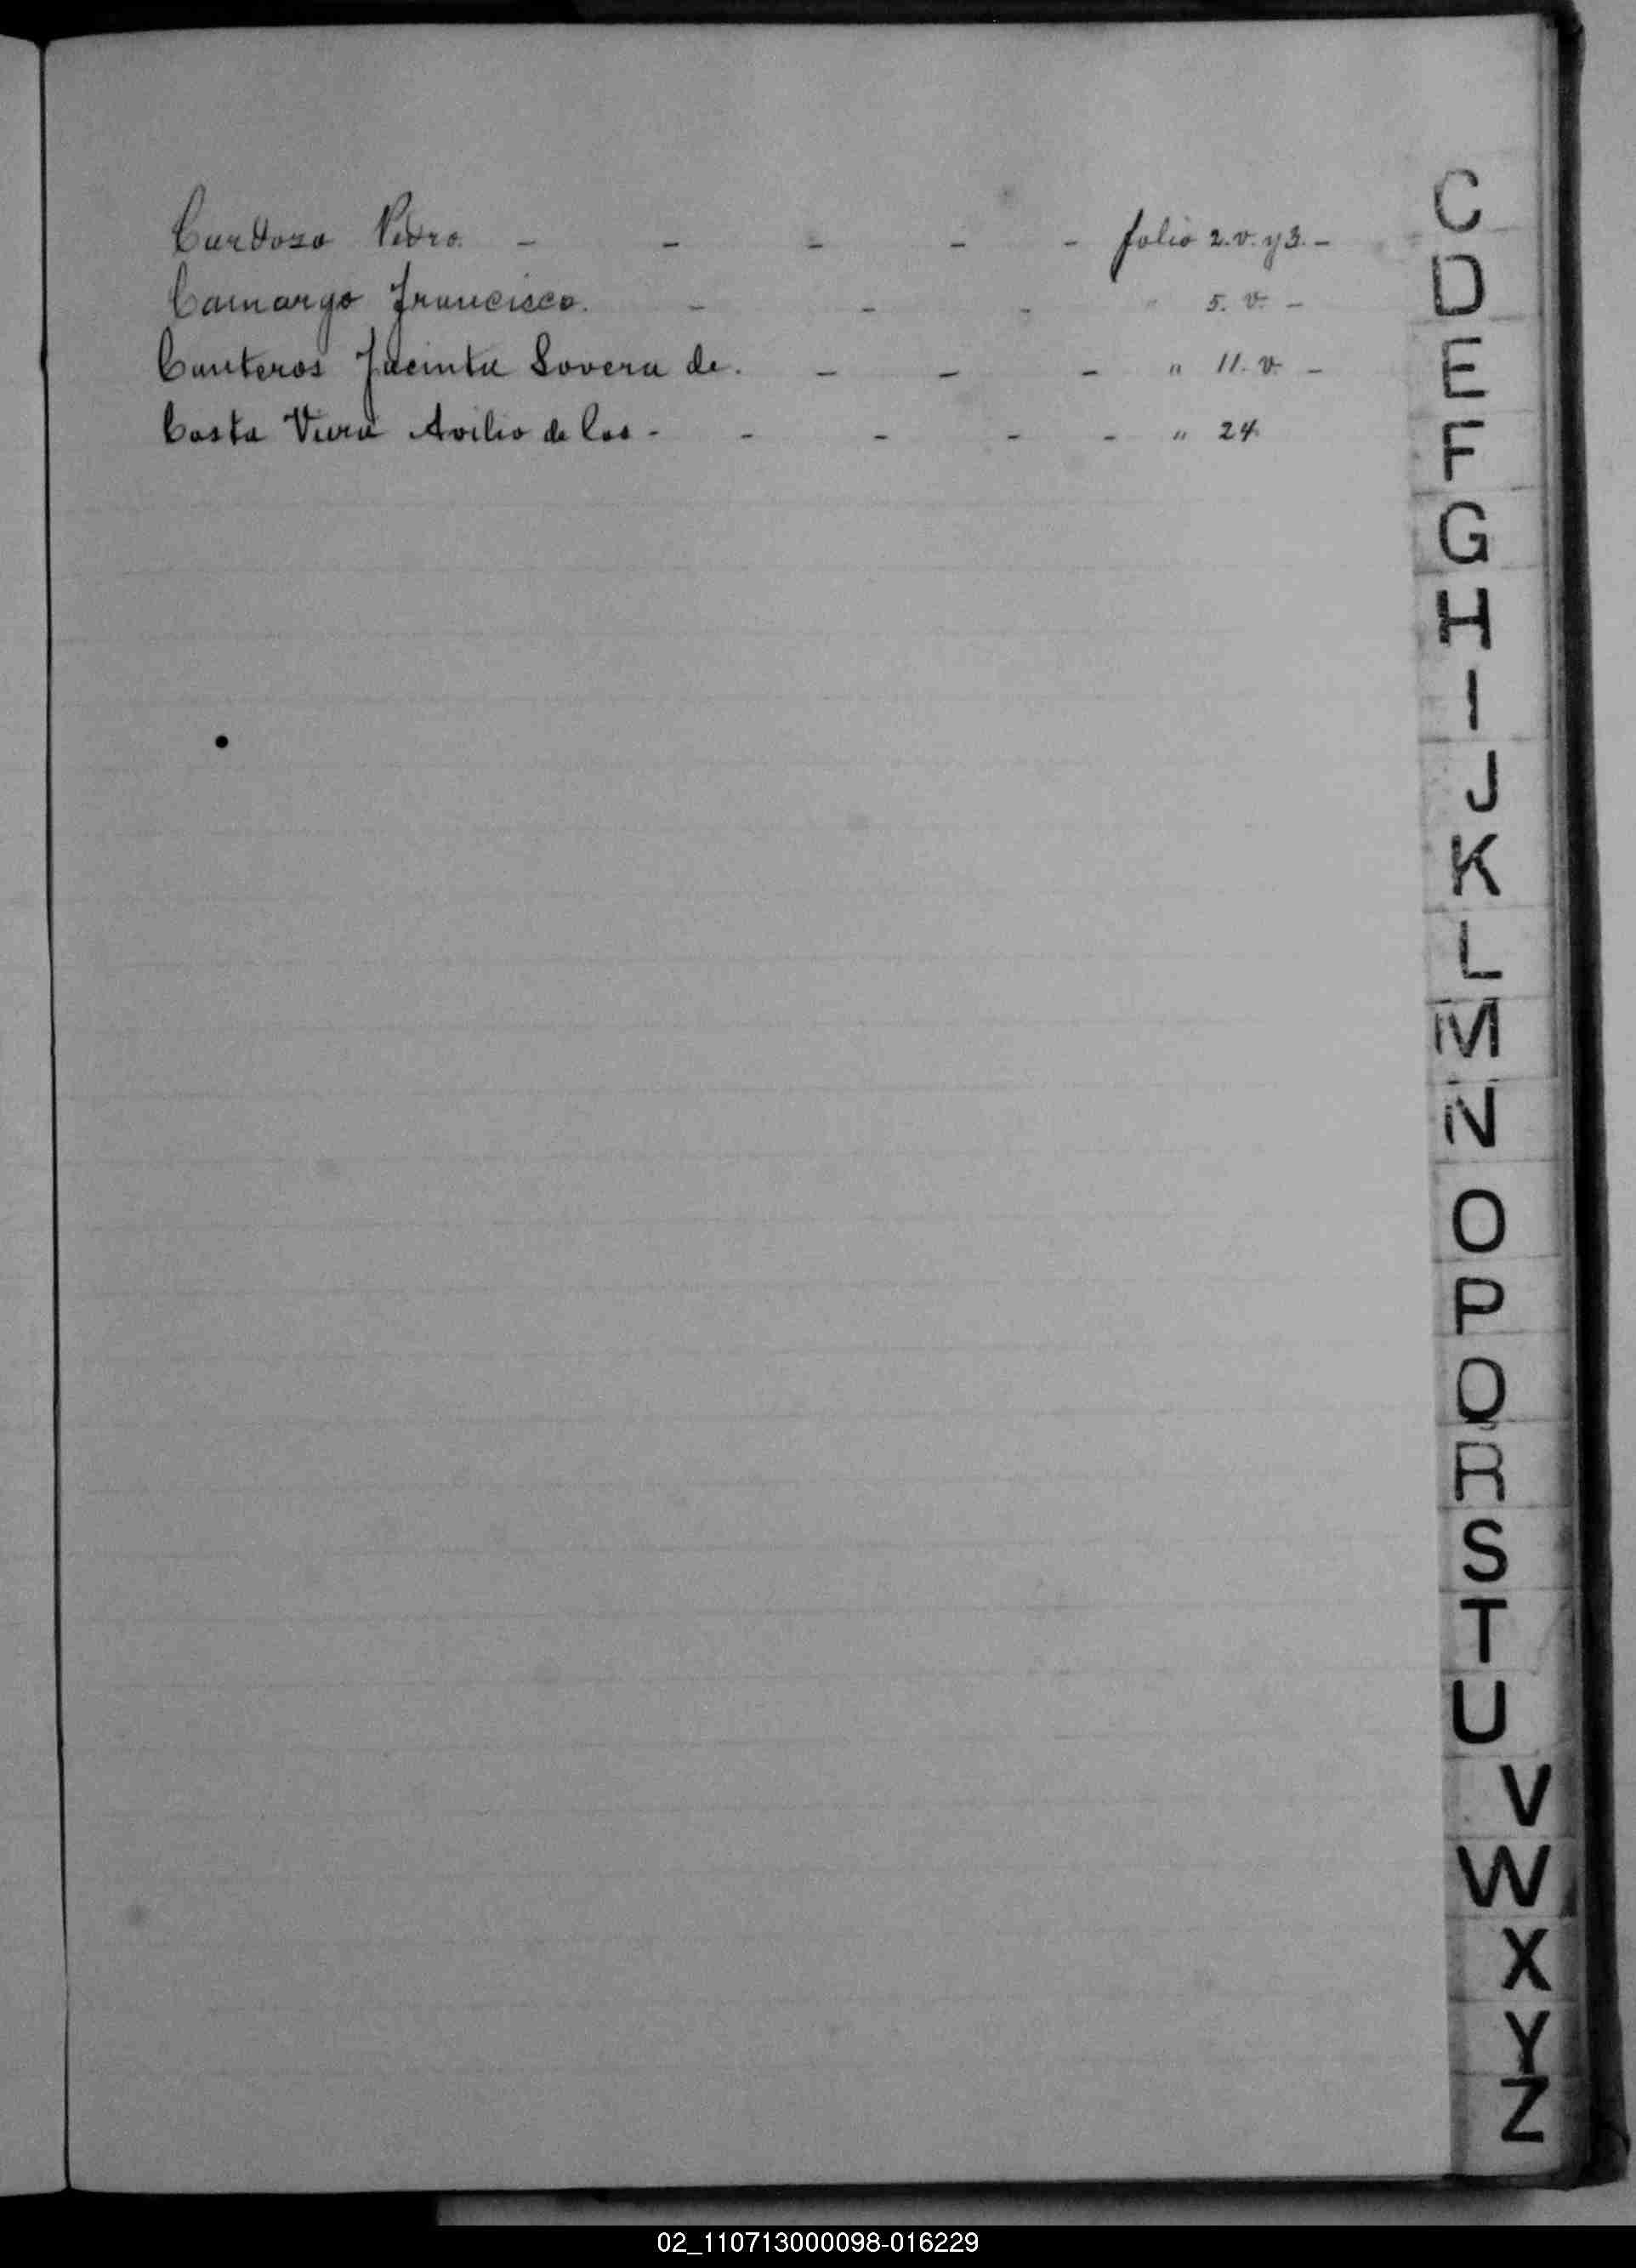 Cardozo Pedro. - - - - - folio 2.v. y 3. -
Camargo Francisco. - - - " 5. v. -
Canteros Jacinta Lovera de. - - - " 11. v. -
Costa Viera Avilio de las - - - - - " 24.
C
D
E
F
G
H
I
J
K
L
M
N
O
P
Q
R
S
T
U
V
W
X
Y
Z
02_110713000098-016229